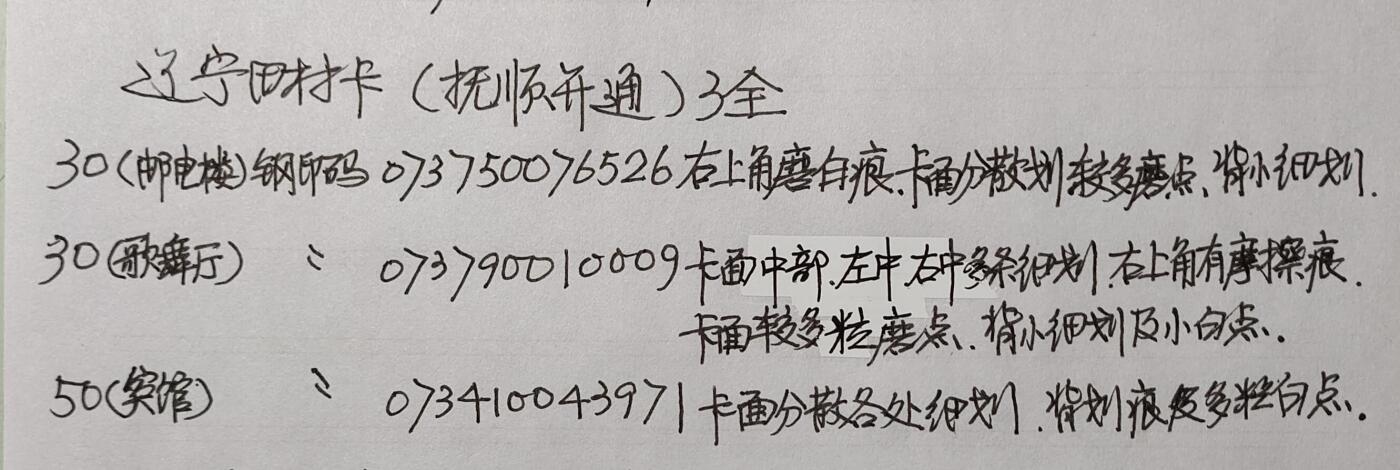 辽宁田村卡（抚顺开通）3全
30（邮电楼）钢印码 073750076526 右上角磨白痕、卡面分散划较多磨点、背小细划.
30（歌舞厅） 〃 073790010009 卡面中部、左中右中多条细划、右上角有摩擦痕.
卡面较多粒磨点、背小细划及小白点.
50（宾馆） 〃 073410043971 卡面分散各处细划、背划痕及多粒白点.